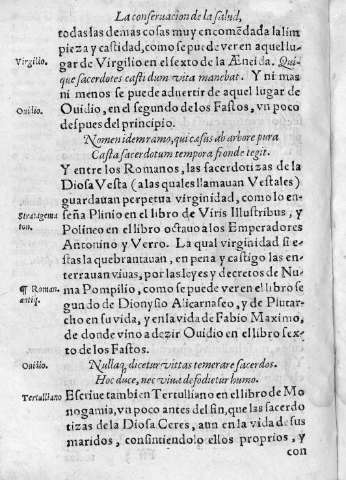 La conseruacion de la salud,
todas las demas cosas muy encomẽdada la lim
pieza y castidad, como se puede ver en aquel lu-
Virgilio.
gar de Virgilio en el sexto de la Æneida. Qui-
que sacerdotes casti dum vita manebat. Y ni mas
ni menos se puede aduertir de aquel lugar de
Ouilio.
Ouidio, en el segundo de los Fastos, vn poco
despues del principio.
Nomen idem ramo, qui cæsus ab arbore pura
Casta sacerdotum tempora fronde tegit.
Y entre los Romanos, las sacerdotizas de la
Diosa Vesta (a las quales llamauan Vestales)
guardauan perpetua virginidad, como lo en-
Stratagema
ton.
seña Plinio en el libro de Viris Illustribus, y
Polineo en el libro octauo a los Emperadores
Antonino y Verro. La qual virginidad si e-
stas la quebrantauan, en pena y castigo las en-
terrauan viuas, por las leyes y decretos de Nu-
¶ Roman.
antiq.
ma Pompilio, como se puede ver en el libro se
gundo de Dionysio Alicarnaseo, y de Plutar-
cho en su vida, y en la vida de Fabio Maximo,
de donde vino a dezir Ouidio en el libro sex-
to de los Fastos.
Ouilio.
Nullaq, dicetur vittas temerare sacerdos.
Hoc duce, nec viua defodietur humo.
Tertulliano
Escriue tambien Tertulliano en el libro de Mo
nogamia, vn poco antes del fin, que las sacerdo
tizas de la Diosa Ceres, aun en la vida de sus
maridos, consintiendolo ellos proprios, y
con